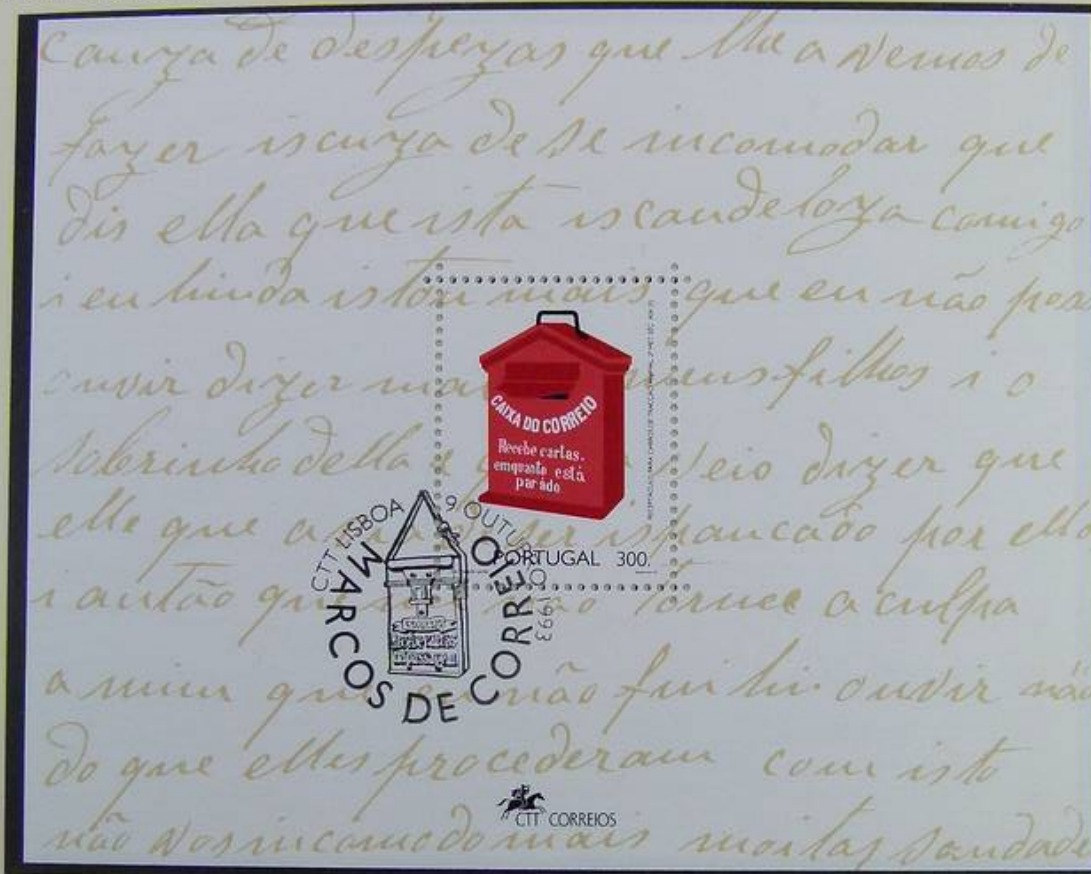 Cauza de despezas que lhe a vemos de
fazer iscuza de se incomodar que
dis ella que ista iscandeloza comigo
i eu hinda istou mais que eu não pos
ouvir dizer meus filhos i o
sobrinho della e veio dizer que
elle que a ser ispancado por ella
i antão que não torne a culpa
a mim que não fui hi ouvir
do que elles procederam com isto
não vos incomodo mais moitas saudade
CAIXA DO CORREIO
Recebe cartas.
emquanto está
parádo
PORTUGAL 300.
CTT LISBOA 9 OUTUBRO 1993
MARCOS DE CORREIO
CTT CORREIOS